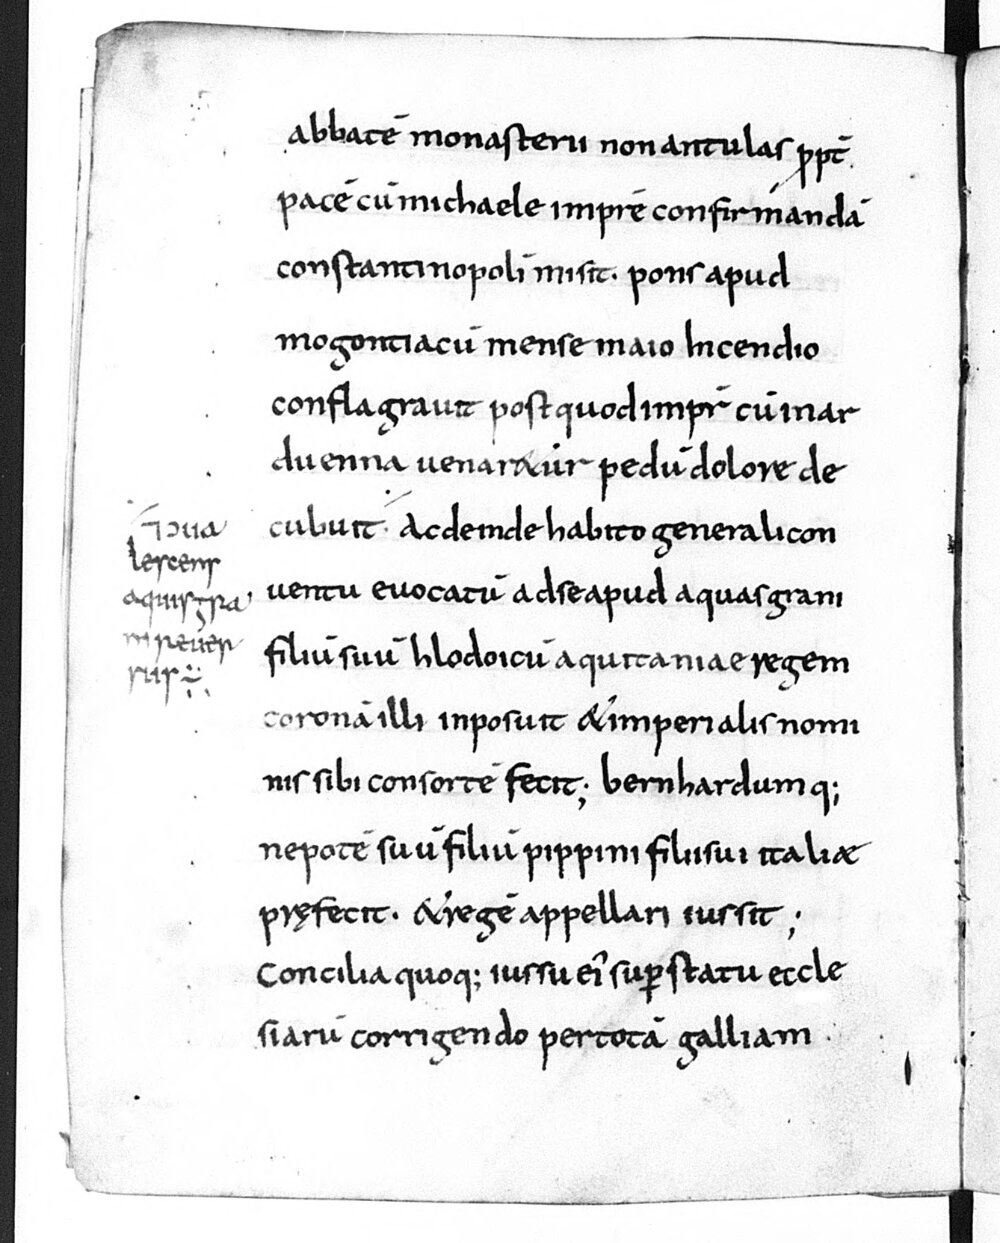 abbatē monasterii nonantulas ꝓpt̄
pacē cū michaele imprē confirmandā
constantinopolī misit. pons apud
mogontiacū mense maio Incendio
conflagrauit postquod impr̄ cū inar
duenna uenaret̄ur pedū dolore de
cubuit. Acdeinde habito generali con
uentu euocatū adse apud aquasgrani
filiū suū hlodoicū aquitaniae regem
coronā illi inposuit & imperialis nomi
nis sibi consortē fecit; bernhardumq;
nepotē suū filiū pippini filii sui italiæ
pręfecit. & regē appellari iussit;
Concilia quoq; iussu ei' suꝑ statu eccle
siarū corrigendo pertotā galliam
lescens
aquisgra